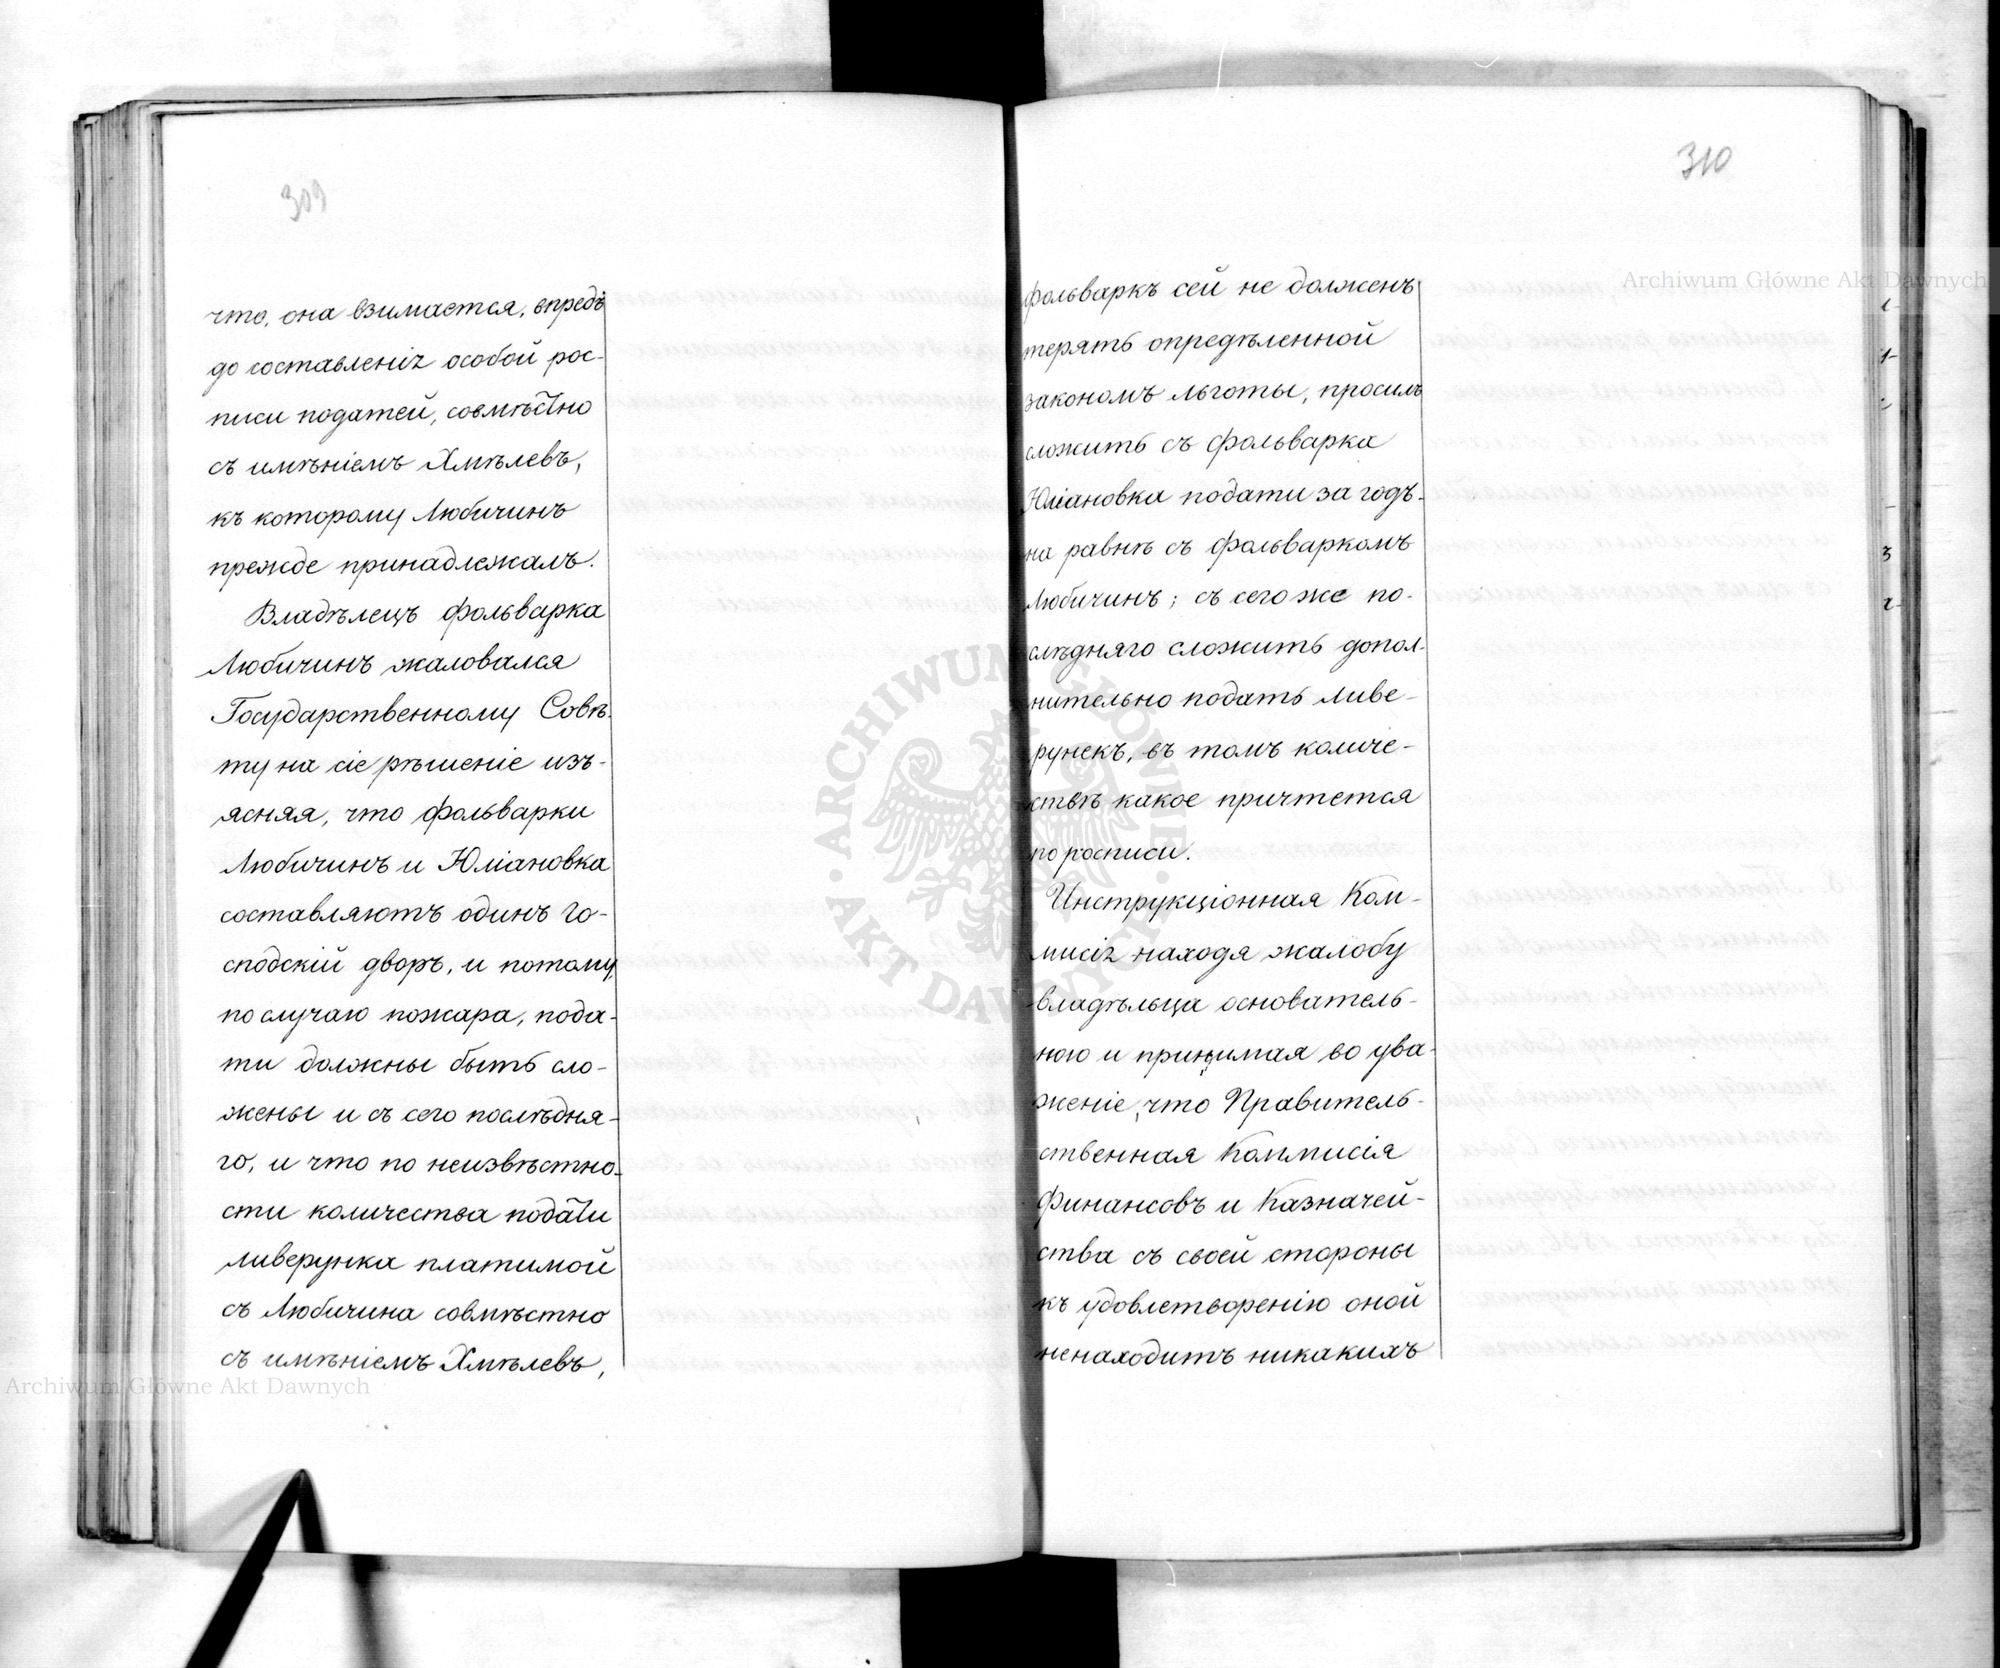 309
что, она взимается, впредь
до составленія особой рос-
писи податей, совмѣстно
съ имѣніемъ Хмѣлевъ,
къ которому Любичинъ
прежде принадлежалъ.
Владѣлецъ фольварка
Любичинъ жаловался
Государственному Совѣ-
ту на сіе рѣшеніе изъ-
ясняя, что фольварки
Любичинъ и Юліановка
составляютъ одинъ го-
сподскій дворъ, и потому,
по случаю пожара, пода-
ти должны быть сло-
жены и съ сего послѣдня-
го, и что по неизвѣстно-
сти количества подати
ливерунка платимой
съ Любичина совмѣстно
съ имѣніемъ Хмѣлевъ,
310
фольваркъ сей не долженъ
терять опредѣленной
закономъ льготы, просилъ
сложить съ фольварка
Юліановка подати за годъ-
на равнѣ съ фольваркомъ
Любичинъ; съ сего же по-
слѣдняго сложить допол-
нительно подать ливе-
рунекъ, въ томъ количе-
ствѣ какое причтется
по росписи.
Инструкціонная Ком-
мисія находя жалобу
владѣльца основатель-
ною и принимая во ува-
женіе, что Правитель-
ственная Коммисія
Финансовъ и Казначей-
ства съ своей стороны
къ удовлетворенію оной
ненаходитъ никакихъ
Archiwum Główne Akt Dawnych
Archiwum Główne Akt Dawnych
ARCHIWUM GŁÓWNE · AKT DAWNYCH ·